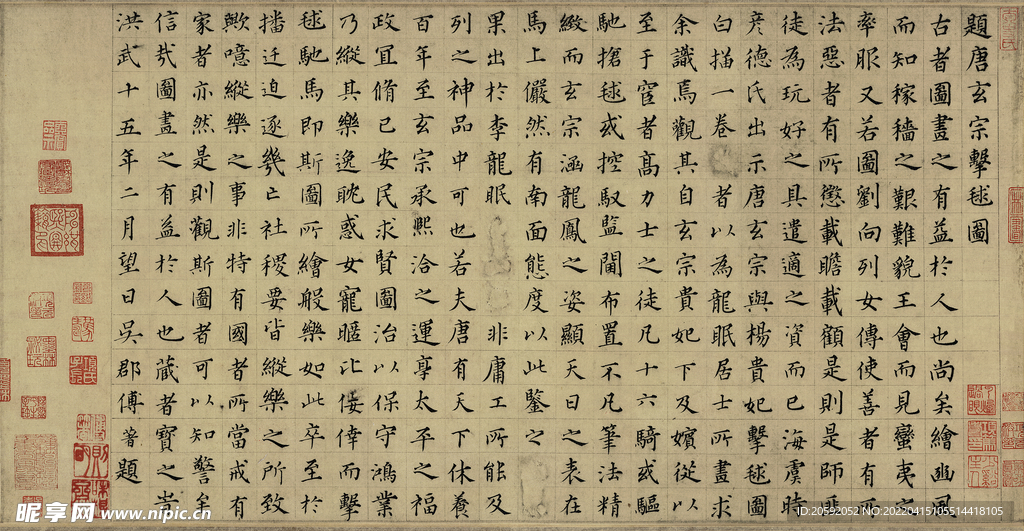 題唐玄宗擊毬圖
古者圖畫之有益於人也尚矣繪豳風
而知稼穡之艱難貌王會而見蠻夷
率服又若圖劉向列女傳使善者有所
法惡者有所懲載瞻載顧是則是師
徒為玩好之具遣適之資而已海虞時
彥德氏出示唐玄宗與楊貴妃擊毬圖
白描一卷者以為龍眠居士所畫求
余識焉觀其自玄宗貴妃下及嬪從以
至于宦者高力士之徒凡十六騎或驅
馳搶毬或控馭監閫布置不凡筆法精
緻而玄宗涵龍鳳之姿顯天日之表在
馬上儼然有南面態度以此鑒之
果出於李龍眠非庸工所能及
列之神品中可也若夫唐有天下休養
百年至玄宗承熙洽之運享太平之福
政宜脩己安民求賢圖治以保守鴻業
乃縱其樂逸耽惑女寵暱比倖而擊
毬馳馬即斯圖所繪般樂如此卒至於
播迁迫逐幾亡社稷要皆縱樂之所致
歟噫縱樂之事非特有國者所當戒有
家者亦然是則觀斯圖者可以知警矣
信哉圖畫之有益於人也藏者寶之
洪武十五年二月望日吳郡傅著題
昵享网 www.nipic.cn
ID:20592052 NO:20220415105514418105